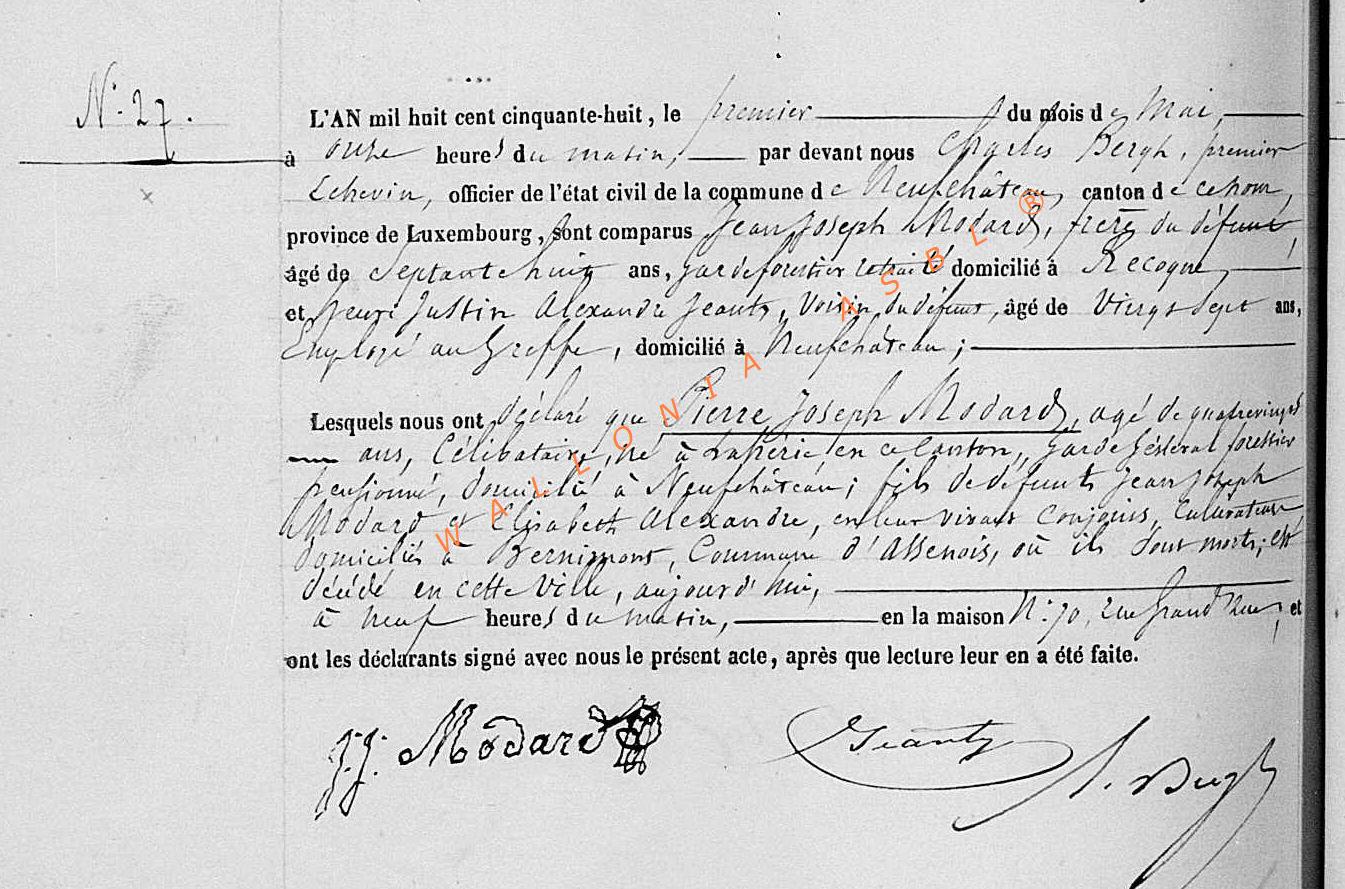 N° 27.
L'AN mil huit cent cinquante-huit, le premier du mois de Mai,
à onze heures du matin, par devant nous Charles Bergh, premier
Echevin, officier de l'état civil de la commune de Neufchâteau, canton de ce nom,
province de Luxembourg, sont comparus Jean Joseph Modard, frère du défunt,
âgé de Septante huit ans, garde forestier retraité domicilié à Recogne,
et Henri Justin Alexandre Jeanty, Voisin du défunt, âgé de Vingt Sept ans,
Employé au Greffe, domicilié à Neufchâteau;
Lesquels nous ont déclaré que Pierre Joseph Modard, agé de quatrevingt
ans, Célibataire, né à en ce Canton, garde général forestier
pensionné, domicilié à Neufchâteau; fils de défunts Jean Joseph
Modard et Elisabeth Alexandre, en leur vivant Conjoints, Cultivateurs,
domiciliés à Bernimont, Commune d'Assenois, où ils sont morts; est
décédé en cette Ville, aujourd'hui,
à neuf heures du matin, en la maison N° 70, rue Grand Rue, et
ont les déclarants signé avec nous le présent acte, après que lecture leur en a été faite.
J. J. Modard
Jeanty
Bergh
WALLONIA ASBL ®